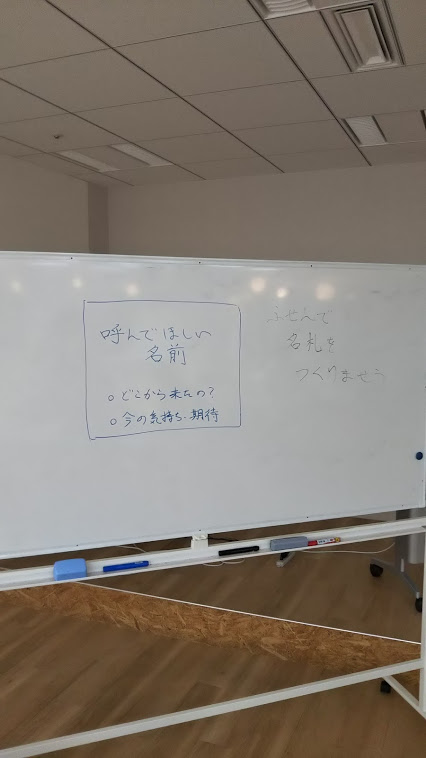 呼んでほしい
名前
○ どこから来たの?
○ 今の気持ち・期待
ふせんで
名札を
つくりませう